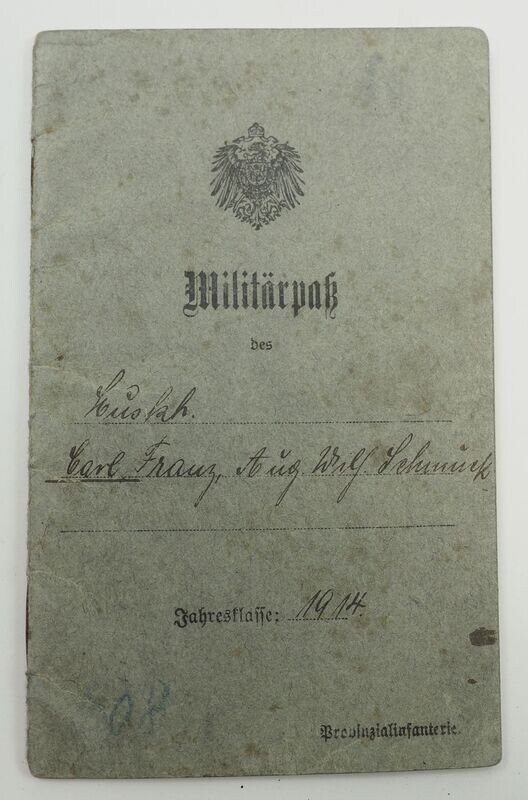 Militärpaß
des
Muskh.
Carl, Franz, Aug. Wilh. Schmuck
Jahresklasse: 1914.
Provinzialinfanterie.